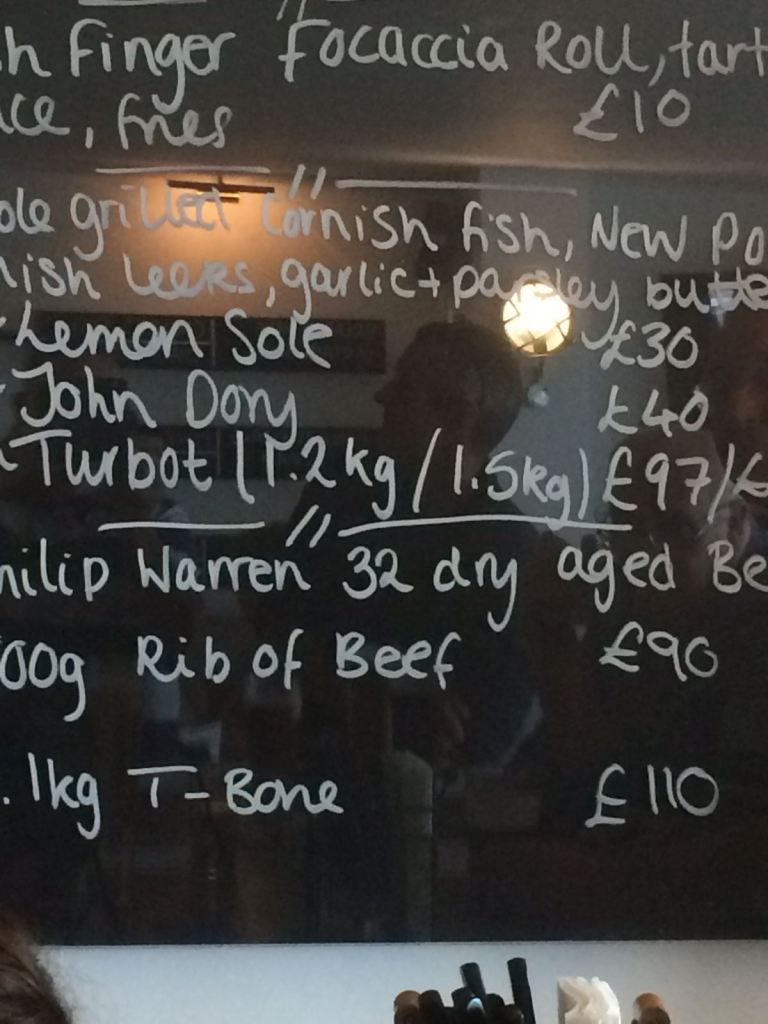 h Finger Focaccia Roll, tart
ce, fries £10
ole grilled Cornish fish, New Po
nish leeks, garlic + parsley butte
- Lemon Sole £30
- John Dory £40
- Turbot (1.2kg/1.5kg) £97/£
hilip Warren 32 dry aged Be
00g Rib of Beef £90
.1kg T-Bone £110